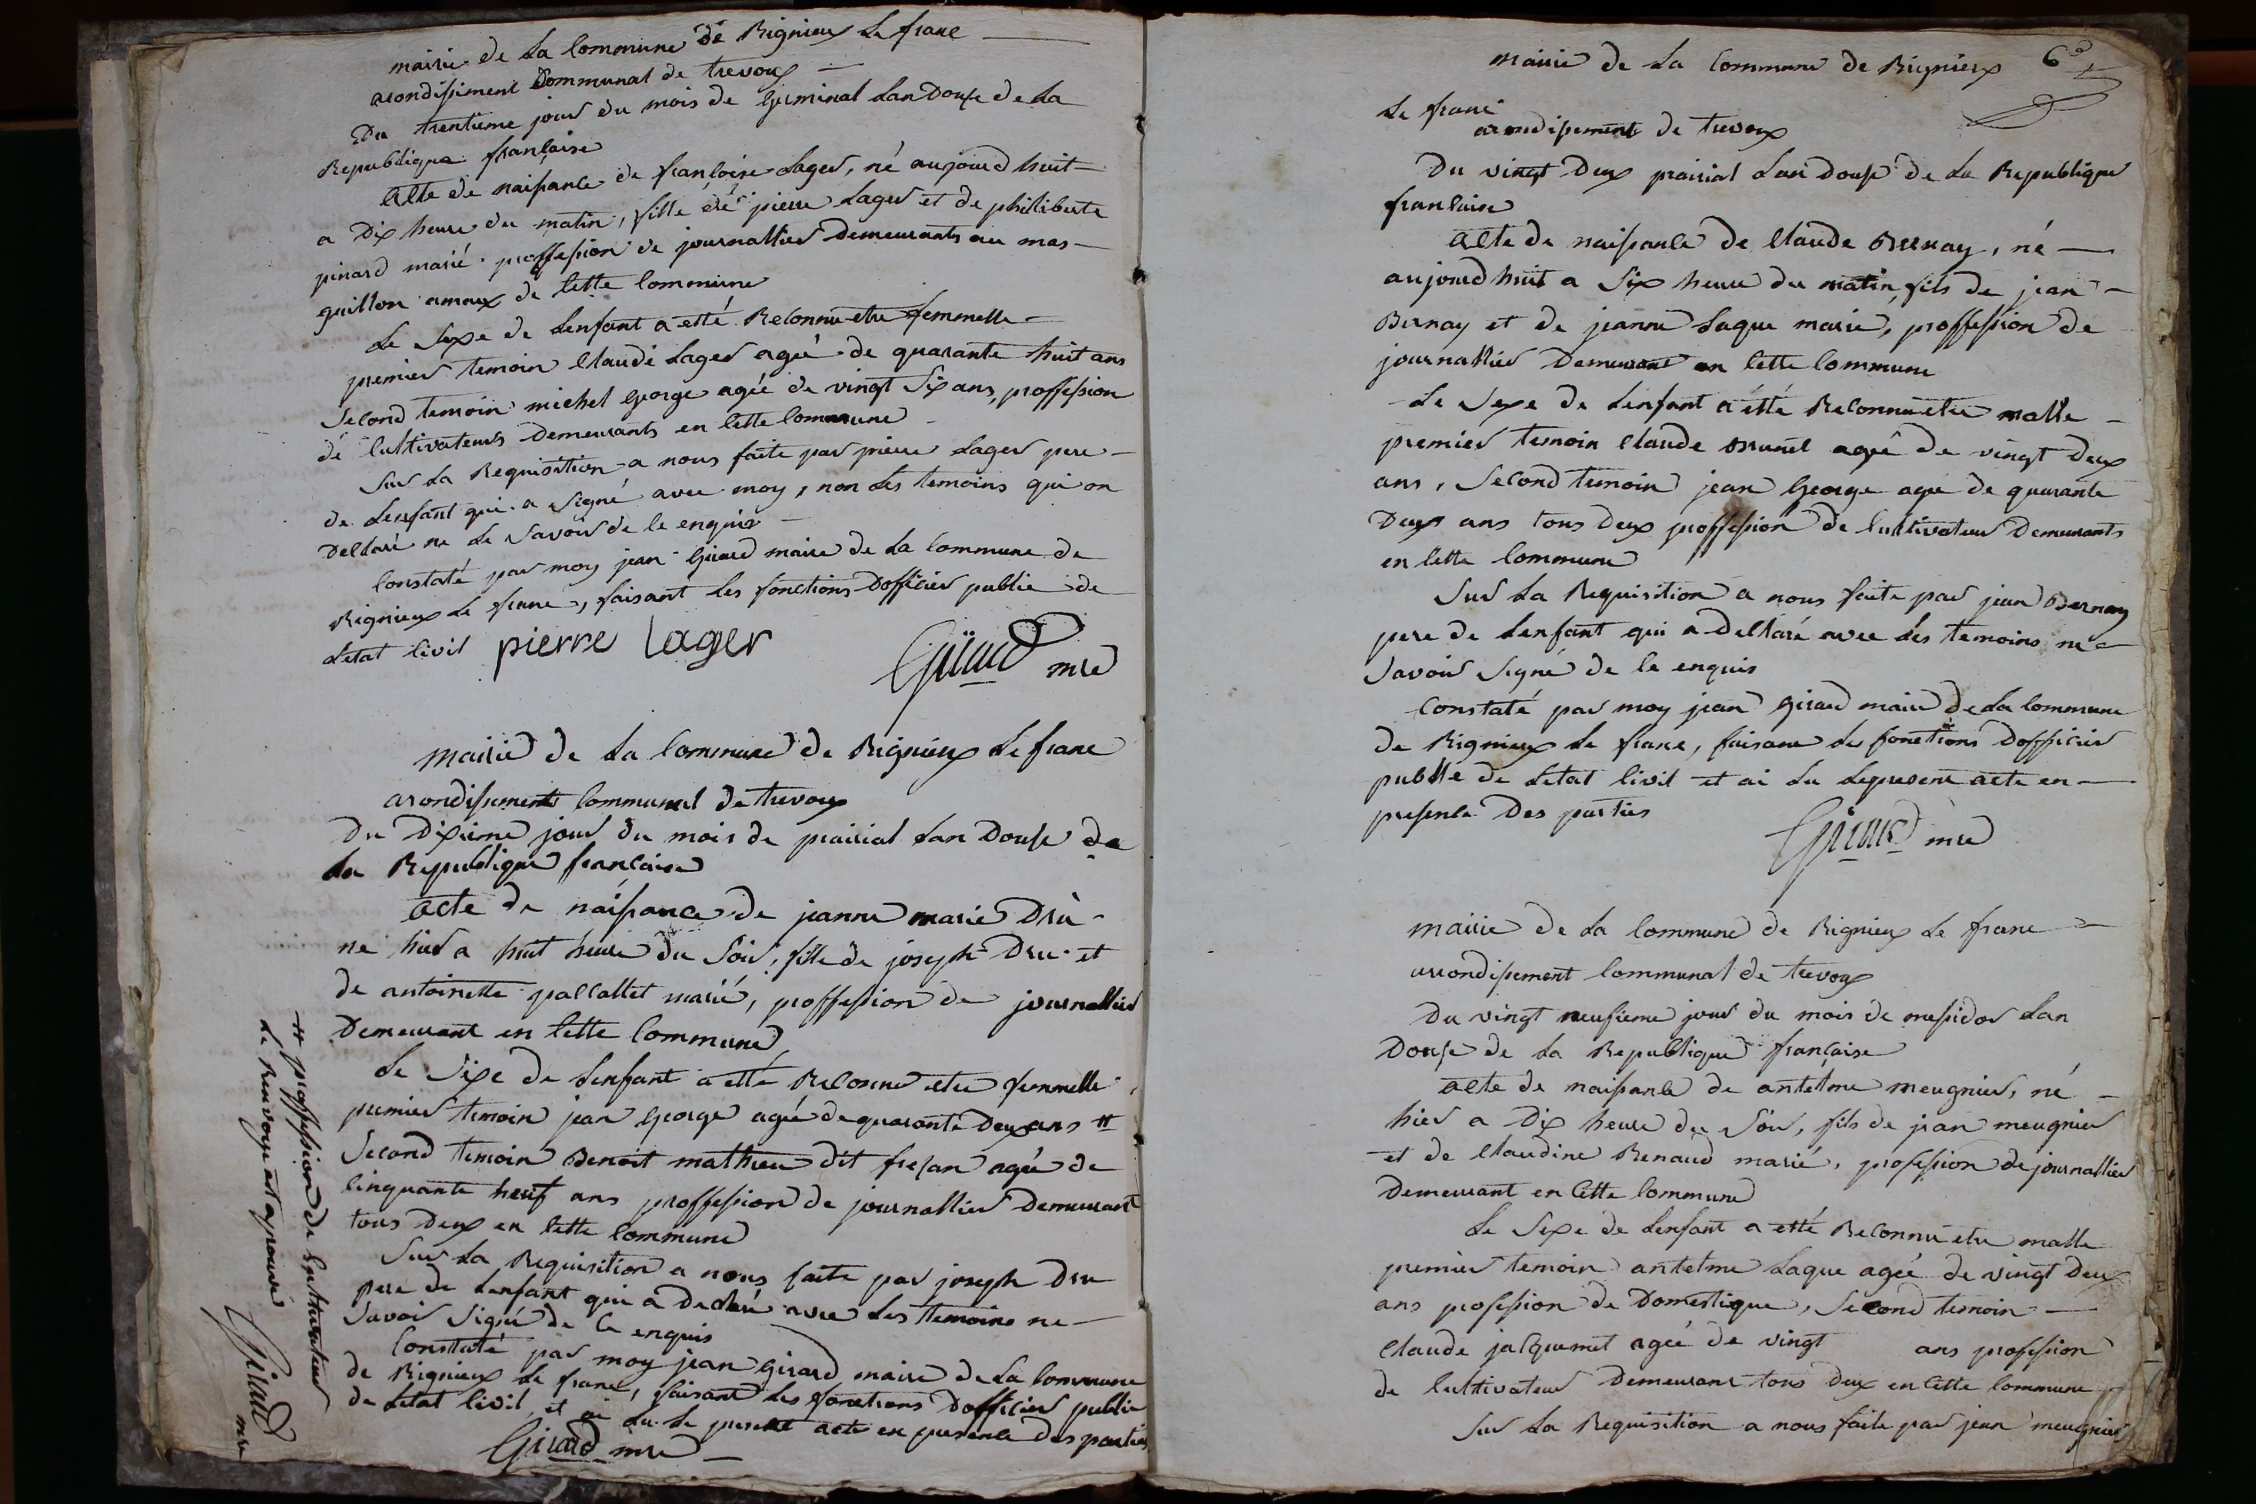 mairie de la Commune de Rignieux Le franc
arondissiment Communal de trevoux
Du trentieme jour du mois de Germinal Lan Douse de La
Republique francaise
Acte de naissance de francoise Lager, né aujourd huit
a Dix heure du matin, fille de pierre Lager et de philiberte
pinard marié. proffession de journallier Demeurants au mas
guillon amaux de cette Commune
Le Sexe de Lenfant a etté Reconnu etre femmelle
premier temoin Claude Lager ageé de quarante huit ans
Second temoin michel George ageé de vingt Six ans, proffession
de Cultivateurs Demeurants en cette Commune
Sur La Requisition a nous faite par pierre Lager pere
de Lenfant qui a Signé avec moy, non Les temoins qui on
Declaré ne Le Savoir de ce enquis
Constaté par moy jean Girard maire de La Commune de
Rignieux Le franc, faisant Les fonctions Dofficier public de
Letat Civil pierre lager
Girard mre
mairie de La Commune de Rignieux Le franc
arondissement Communal de trevoux
Du Dixieme jour du mois de prairial Lan Douse de
La Republique francaise
Acte de naissance de jeanne marie Dru
né hier a huit heure du Soir, fille de joseph Dru et
de antoinette pallattet marié, proffession de journallier
Demeurant en cette Commune
Le Sexe de Lenfant a etté Reconnu etre femmelle
premier temoin jean George ageé de quarante Deux ans #
Second temoin Benoit mathieu dit frejan ageé de
Cinquante neuf ans proffession de journallier Demeurant
tous Deux en cette Commune
Sur La Requisition a nous faite par joseph Dru
pere de Lenfant qui a Declaré avec Les temoins ne
Savoir Signé de ce enquis
Constaté par moy jean Girard maire de La Commune
de Rignieux Le franc, faisant Les fonctions Dofficier public
de Letat Civil et ai Lu Le present acte en presence Des parties
Girard mre
# proffession de Cultivateur
Le Renvoye est aprouvé
Girard mre
6
mairie de La Commune de Rignieux
Le franc
arondissement de trevoux
Du vingt Deux prairial Lan Douse de La Republique
francaise
Acte de naissance de Claude Bernay, né
aujourd huit a Six heure du matin, fils de jean
Bernay et de jeanne Laque marié, proffession de
journallier Demeurant en cette Commune
Le Sexe de Lenfant a etté Reconnu etre malle
premier temoin Claude Brunet ageé de vingt Deux
ans, Second temoin jean George ageé de quarante
Deux ans tous Deux proffession de Cultivateur Demeurants
en cette Commune
Sur La Requisition a nous faite par jean Bernay
pere de Lenfant qui a Declaré avec Les temoins ne
Savoir Signé de ce enquis
Constaté par moy jean Girard maire de La Commune
de Rignieux Le franc, faisant Les fonctions Dofficier
public de Letat Civil et ai Lu Lepresent acte en
presence Des parties
Girard mre
mairie de La Commune de Rignieux Le franc
arrondissement Communal de trevoux
Du vingt neufieme jour du mois de messidor Lan
Douse de La Republique française
Acte de naissance de antelme meugnier, né
hier a Dix heure du Soir, fils de jean meugnier
et de Claudine Renaud marié, profession de journallier
Demeurant en Cette Commune
Le Sexe de Lenfant a etté Reconnu etre malle
premier temoin antelme Laque ageé de vingt Deux
ans profession de Domestique, Second temoin
Claude jacquemet ageé de vingt ans profession
de Cultivateur Demeurant tous Deux en Cette Commune
Sur La Requisition a nous faite par jean meugnier